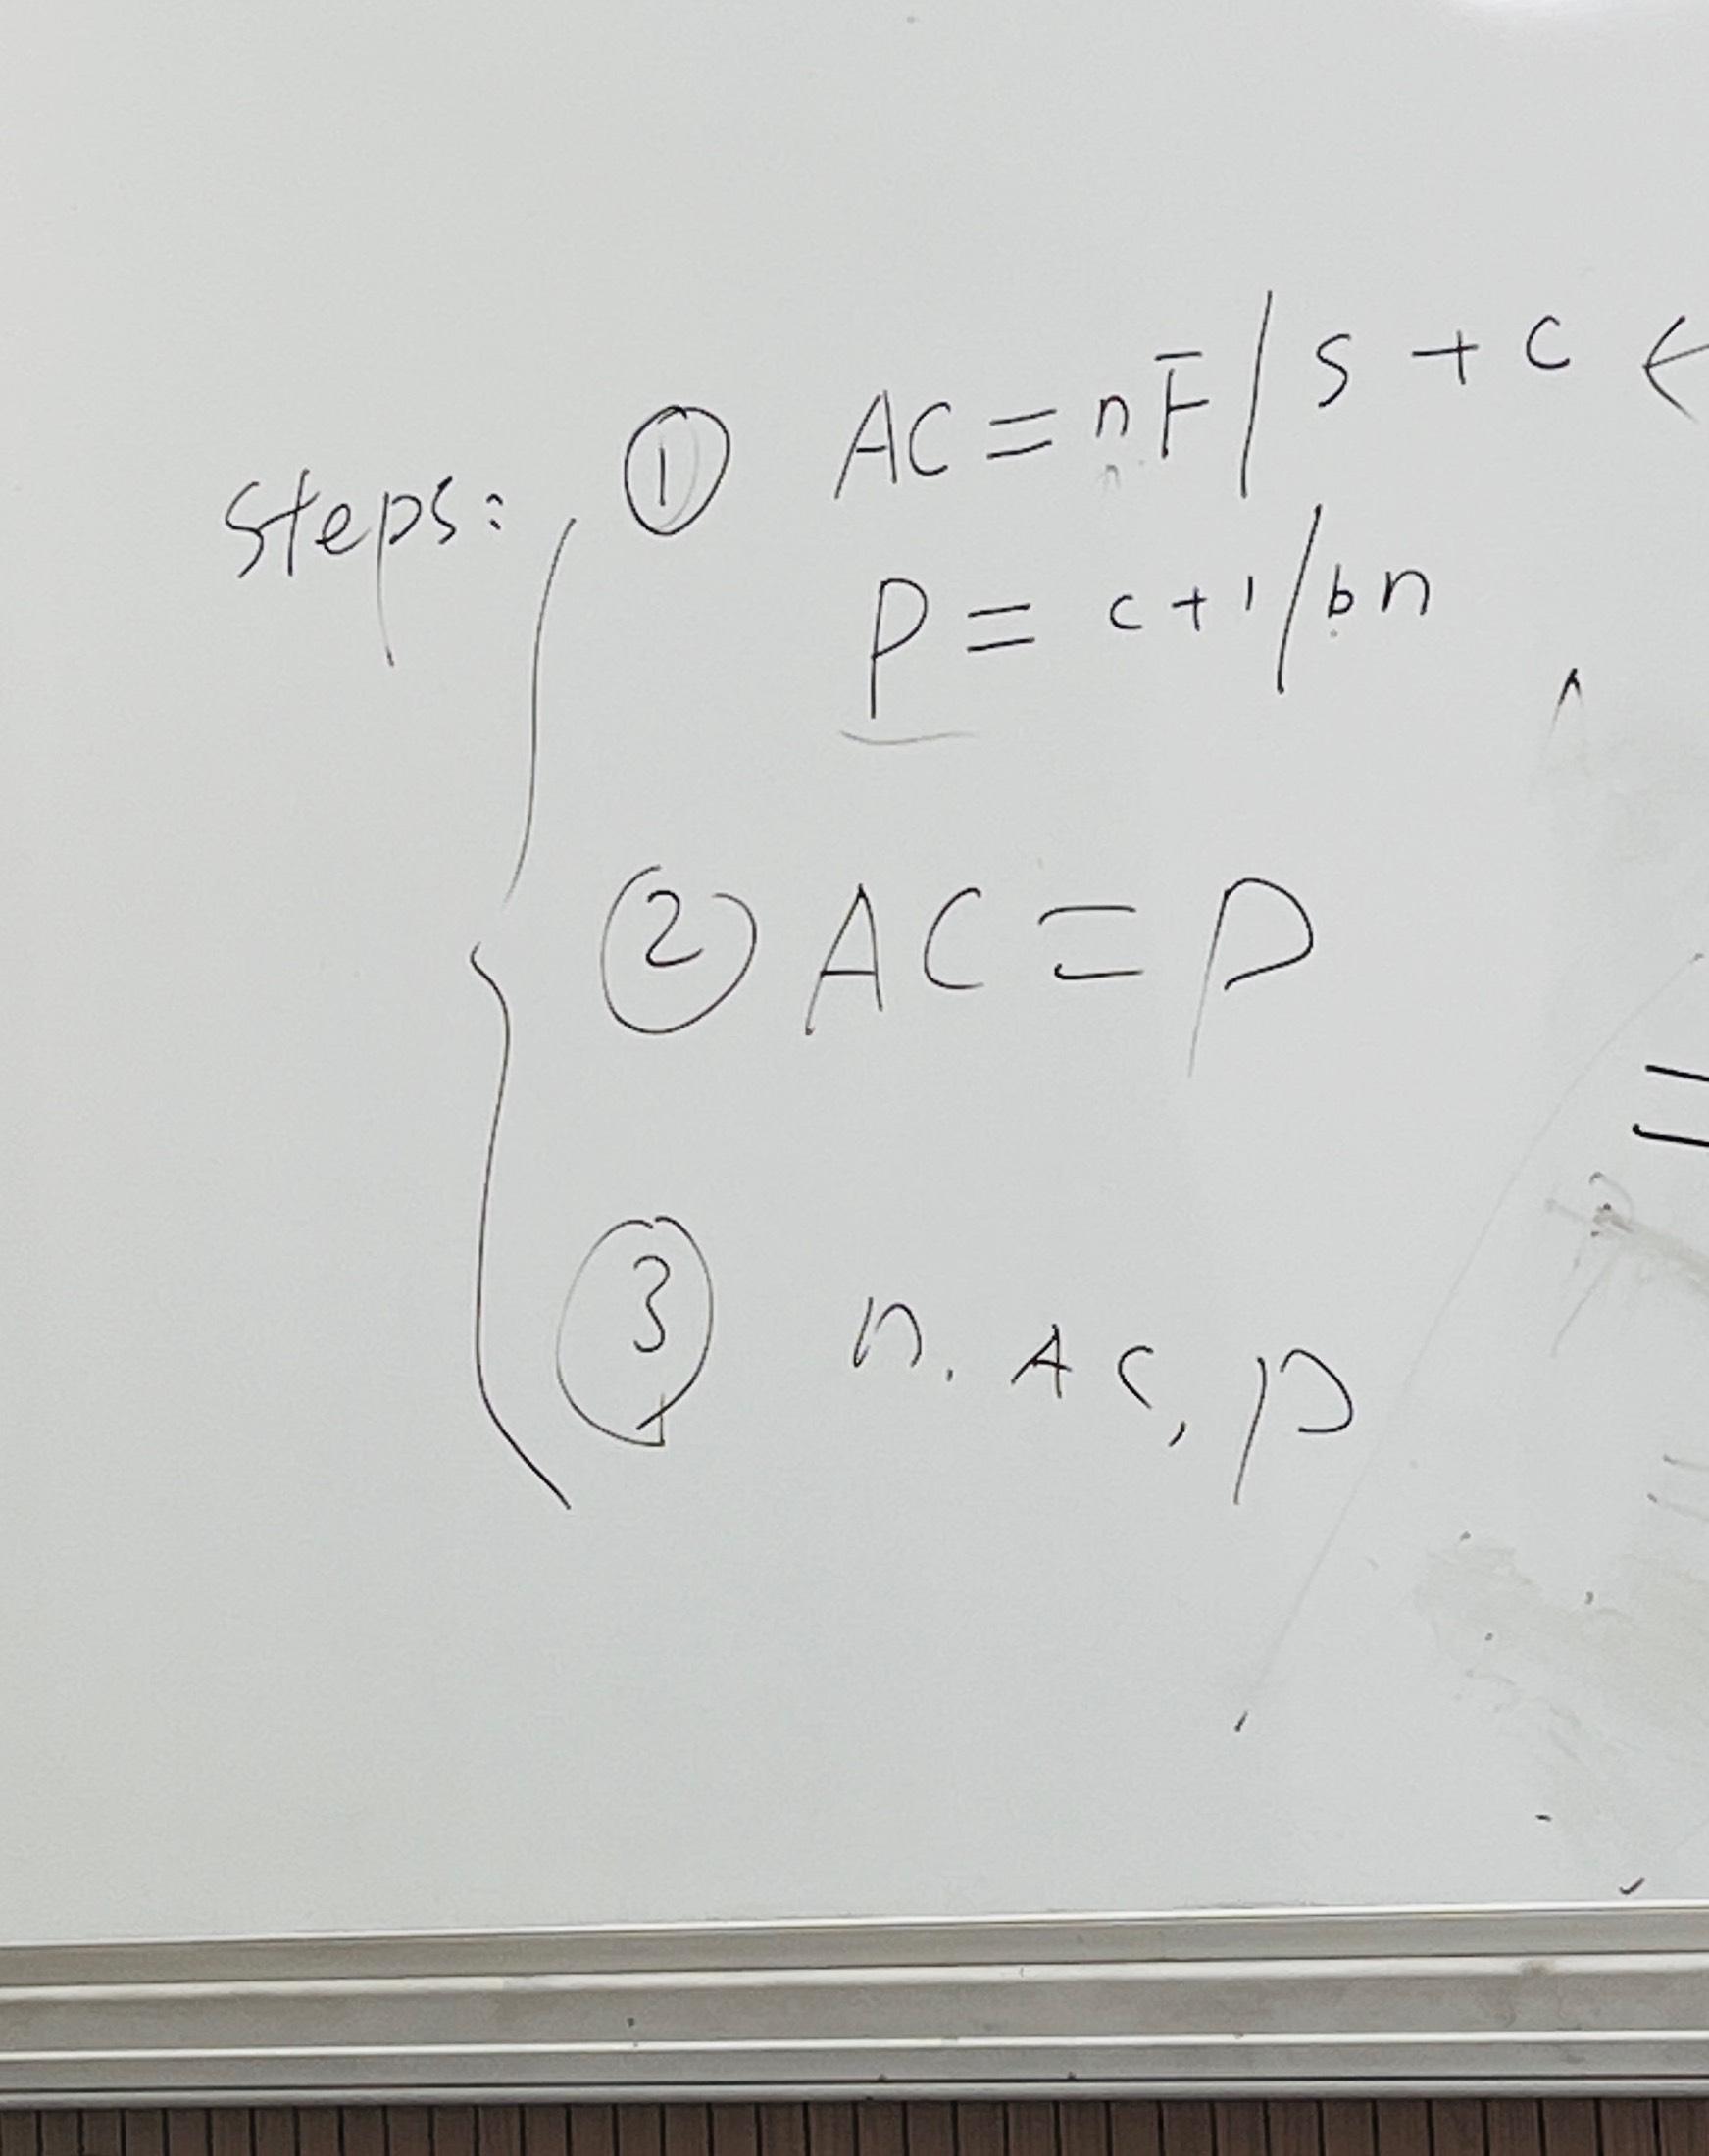 steps:
① AC = nF/S + c ←
P = c + 1/bn
② AC = P
③ n. AC, P
=